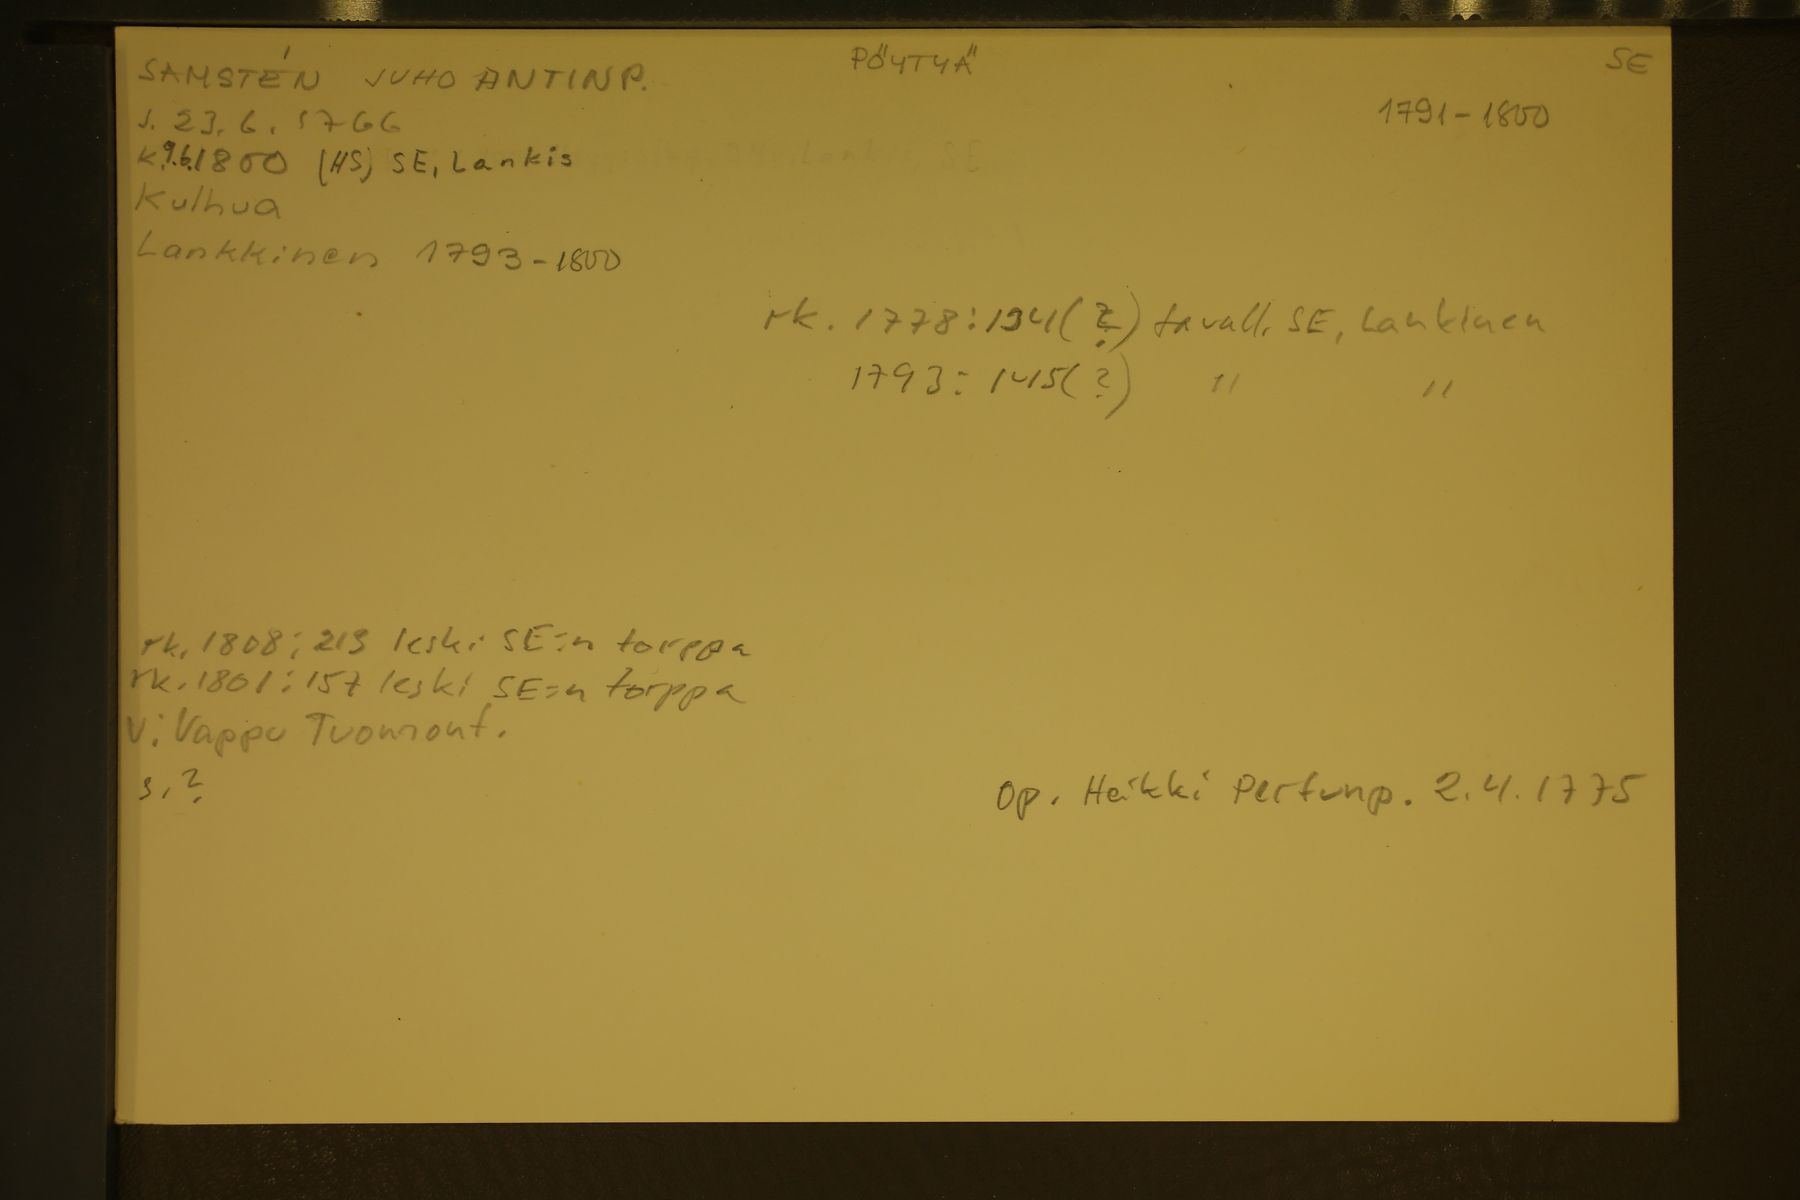 SAMSTÉN JUHO ANTINP. PÖYTYÄ SE
s. 23.6.1766 1791-1800
k.9.6.1800 (HS) SE, Lankis
Kulhua
Lankkinen 1793-1800
rk. 1778:194(?) tavall. SE, Lankinen
1793:145(?) " "
rk. 1808:213 leski SE:n torppa
rk. 1801:157 leski SE:n torppa
V: Vappu Tuomont.
s. ?
Op. Heikki Pertunp. 2.4.1775